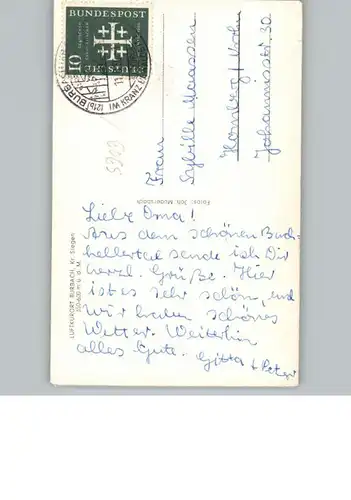 BUNDESPOST
10
(21b) BURB
IM KRANZ
Frau
Sybille Maassen
Homberg / Nrhn
Johannisstr. 30
Fotos: Joh. Mudersbach
LUFTKURORT BURBACH, Kr. Siegen
350-630 m ü. d. M.
Liebe Oma!
Aus dem schönen Buch-
hellertal sende ich Dir
herzl. Grüße. Hier
ist es sehr schön, und
wir haben schönes
Wetter. Weiterhin
alles Gute. Gitta + Peter